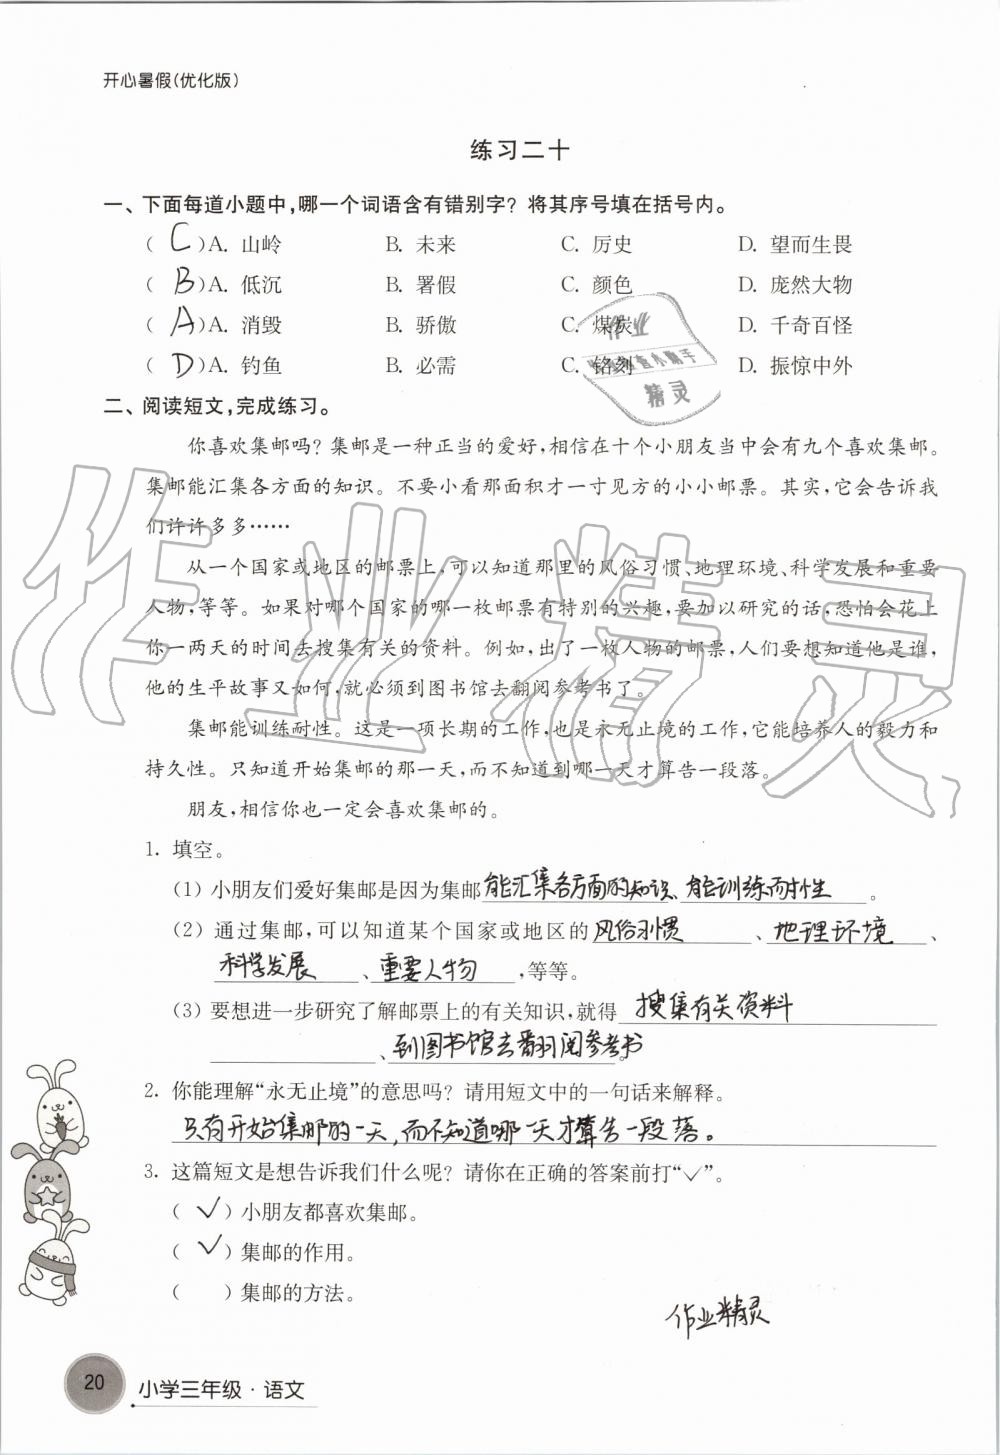 开心暑假(优化版)
练习二十
一、下面每道小题中,哪一个词语含有错别字？将其序号填在括号内。
( C )A. 山岭 B. 未来 C. 厉史 D. 望而生畏
( B )A. 低沉 B. 署假 C. 颜色 D. 庞然大物
( A )A. 消毁 B. 骄傲 C. 煤炭 D. 千奇百怪
( D )A. 钓鱼 B. 必需 C. 铭刻 D. 振惊中外
二、阅读短文,完成练习。
你喜欢集邮吗？集邮是一种正当的爱好,相信在十个小朋友当中会有九个喜欢集邮。
集邮能汇集各方面的知识。不要小看那面积才一寸见方的小小邮票。其实,它会告诉我
们许许多多……
从一个国家或地区的邮票上,可以知道那里的风俗习惯、地理环境、科学发展和重要
人物,等等。如果对哪个国家的哪一枚邮票有特别的兴趣,要加以研究的话,恐怕会花上
你一两天的时间去搜集有关的资料。例如,出了一枚人物的邮票,人们要想知道他是谁,
他的生平故事又如何,就必须到图书馆去翻阅参考书了。
集邮能训练耐性。这是一项长期的工作,也是永无止境的工作,它能培养人的毅力和
持久性。只知道开始集邮的那一天,而不知道到哪一天才算告一段落。
朋友,相信你也一定会喜欢集邮的。
1. 填空。
(1) 小朋友们爱好集邮是因为集邮能汇集各方面的知识、能训练耐性。
(2) 通过集邮,可以知道某个国家或地区的风俗习惯、地理环境、
科学发展、重要人物,等等。
(3) 要想进一步研究了解邮票上的有关知识,就得搜集有关资料
、到图书馆去翻阅参考书。
2. 你能理解“永无止境”的意思吗？请用短文中的一句话来解释。
只有开始集邮的一天,而不知道哪一天才算告一段落。
3. 这篇短文是想告诉我们什么呢？请你在正确的答案前打“✓”。
( ✓ )小朋友都喜欢集邮。
( ✓ )集邮的作用。
( )集邮的方法。
作业精灵
20
小学三年级·语文
作业精灵
作业
精灵